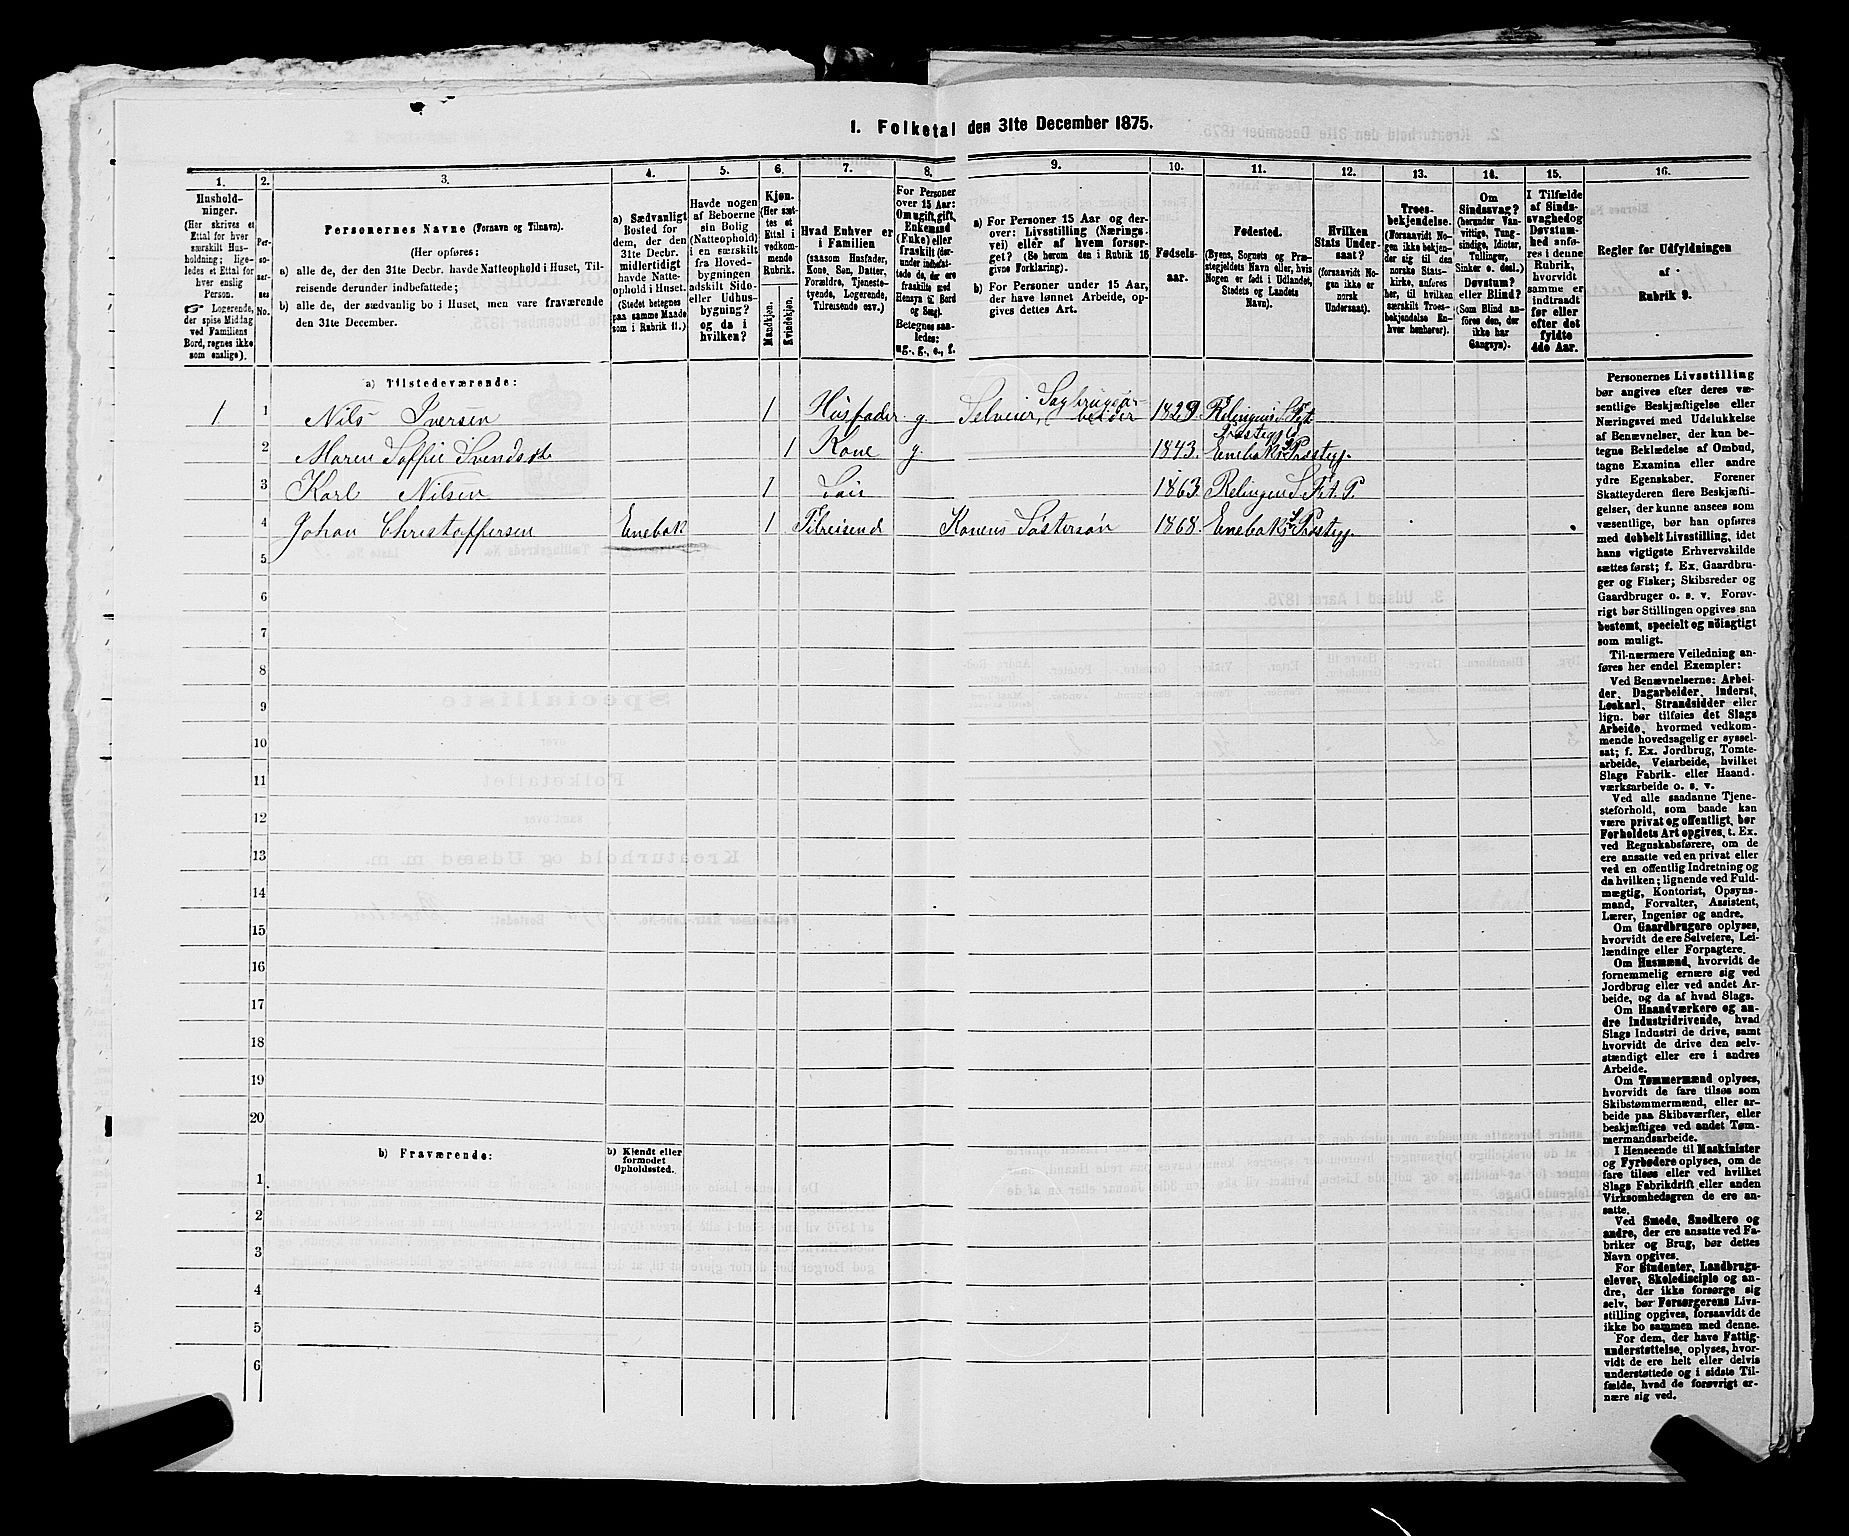 1. Folketal den 31te December 1875.
1.
Hushold-
ninger.
(Her skrives et
Ettal for hver
særskilt Hus-
holdning; lige-
ledes et Ettal for
hver enslig
Person.
☞ Logerende,
der spise Middag
ved Familiens
Bord, regnes ikke
som enslige).
2.
Per-
so-
ner-
nes
No.
3.
Personernes Navne (Fornavn og Tilnavn).
(Her opføres:
a) alle de, der den 31te Decbr. havde Natteophold i Huset, Til-
reisende derunder indbefattede;
b) alle de, der sædvanlig bo i Huset, men vare fraværende
den 31te December.
4.
a) Sædvanligt
Bosted for
dem, der den
31te Decbr.
midlertidigt
havde Natte-
ophold i Huset.
(Stedet betegnes
paa samme Maade
som i Rubrik 11.)
5.
Havde nogen
af Beboerne
sin Bolig
(Natteophold)
i en særskilt
fra Hoved-
bygningen
adskilt Side-
eller Udhus-
bygning?
og da i
hvilken?
6.
Kjøn.
(Her sæt-
tes et
Ettal i
vedkom-
mende
Rubrik.
Mandkjøn.
Kvindekjøn.
7.
Hvad Enhver er
i Familien
(saasom Husfader,
Kone, Søn, Datter,
Forældre, Tjeneste-
tyende, Logerende,
Tilreisende osv.)
8.
For Personer
over 15 Aar:
Om ugift, gift,
Enkemand
(Enke) eller
fraskilt (der-
under indbefat-
tede de, der ere
fraskilte med
Hensyn til Bord
og Seng).
Betegnes saa-
ledes:
ug., g., e., f.
9.
a) For Personer 15 Aar og der-
over: Livsstilling (Nærings-
vei) eller af hvem forsør-
get? (Se herom den i Rubrik 16
givne Forklaring).
b) For Personer under 15 Aar,
der have lønnet Arbeide, op-
gives dettes Art.
10.
Fødsels-
aar.
11.
Fødested.
(Byens, Sognets og Præ-
stegjeldets Navn eller, hvis
Nogen er født i Udlandet,
Stedets og Landets
Navn).
12.
Hvilken
Stats Under-
saat?
(forsaavidt No-
gen ikke er
norsk
Undersaat).
13.
Troes-
bekjendelse.
(Forsaavidt No-
gen ikke bekjen-
der sig til den
norske Stats-
kirke, anføres
her, til hvilken
særskilt Troes-
bekjendelse En-
hver henhører).
14.
Om
Sindssvag?
(herunder Van-
vittige, Tung-
sindige, Idioter,
Tullinger,
Sinker o. desl.)
Døvstum?
eller Blind?
(Som Blind an-
føres den, der
ikke har
Gangsyn).
15.
I Tilfælde
af Sinds-
svaghed og
Døvstum-
hed anfø-
res i denne
Rubrik,
hvorvidt
samme er
indtraadt
før eller
efter det
fyldte
4de Aar.
16.
Regler for Udfyldningen
af
Rubrik 9.
a) Tilstedeværende:
1 1 Nils Iversen 1 Husfader g. Selveier, Sagbrugsar-
beider 1829. Relingens S. Fet
Præstegjeld
2 Maren Soffie Svendsdt 1 Kone g. 1843. Enebaks Præstegj.
3 Karl Nilsen 1 Søn 1863. Relingen S. Fet. P.
4 Johan Christoffersen Enebak 1 Tilreisende Konens Søstersøn 1868. Enebaks Præstegj.
5
6
7
8
9
10
11
12
13
14
15
16
17
18
19
20
b) Fraværende:
b) Kjendt eller
formodet
Opholdssted.
1
2
3
4
5
6
Personernes Livsstilling
bør angives efter deres væ-
sentlige Beskjæftigelse eller
Næringsvei med Udelukkelse
af Benævnelser, der kun be-
tegne Beklædelse af Ombud,
tagne Examina eller andre
ydre Egenskaber. Forener
Skatteyderen flere Beskjæfti-
gelser, der kunne ansees som
væsentlige, bør han opføres
med dobbelt Livsstilling, idet
hans vigtigste Erhvervskilde
sættes først; f. Ex. Gaardbru-
ger og Fisker; Skibsreder og
Gaardbruger o. s. v. Forøv-
rigt bør Stillingen opgives saa
bestemt, specielt og nöiagtigt
som muligt.
Til nærmere Veiledning an-
føres her endel Exempler:
Ved Benævnelserne: Arbei-
der, Dagarbeider, Inderst,
Løskarl, Strandsidder eller
lign. bør tilføies det Slags
Arbeide, hvormed vedkom-
mende hovedsagelig er syssel-
sat; f. Ex. Jordbrug, Tomte-
arbeide, Veiarbeide, hvilket
Slags Fabrik- eller Haand-
værksarbeide o. s. v.
Ved alle saadanne Tjene-
steforhold, som baade kan
være privat og offentligt, bør
Forholdets Art opgives, t. Ex.
ved Regnskabsførere, om de
ere ansatte ved en privat eller
ved en offentlig Indretning og
da hvilken; lignende ved Fuld-
mægtig, Kontorist, Opsyns-
mand, Forvalter, Assistent,
Lærer, Ingeniør og andre.
Om Gaardbrugere oplyses,
hvorvidt de ere Selveiere, Lei-
lændinge eller Forpagtere.
Om Husmænd, hvorvidt de
fornemmelig ernære sig ved
Jordbrug eller ved andet Ar-
beide, og da af hvad Slags.
Om Haandværkere og an-
dre Industridrivende, hvad
Slags Industri de drive, samt
hvorvidt de drive den selv-
stændigt eller ere i andres
Arbeide.
Om Tømmermænd oplyses,
hvorvidt de fare tilsøs som
Skibstømmermænd, eller ar-
beide paa Skibsværfter, eller
beskjæftiges ved andet Tøm-
mermandsarbeide.
I Henseende til Maskinister
og Fyrbødere oplyses, om de
fare tilsøs eller ved hvilket
Slags Fabrikdrift eller anden
Virksomhedsgren de ere an-
satte.
Ved Smede, Snedkere og
andre, der ere ansatte ved Fa-
briker og Brug, bør dettes
Navn opgives.
For Studenter, Landbrugs-
elever, Skoledisciple og an-
dre, der ikke forsørge sig
selv, bør Forsørgerens Livs-
stilling opgives, forsaavidt de
ikke bo sammen med denne.
For dem, der have Fattig-
understøttelse, oplyses, hvor-
vidt de ere helt eller delvis
understøttede og i sidste Til-
fælde, hvad de forøvrigt er-
nære sig ved.